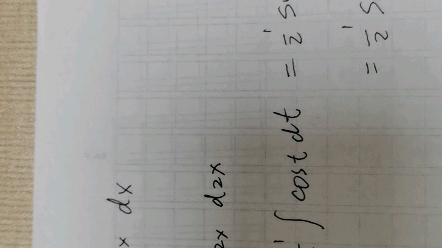 x dx
2x d2x
∫ cost dt = 1/2 s
= 1/2 s